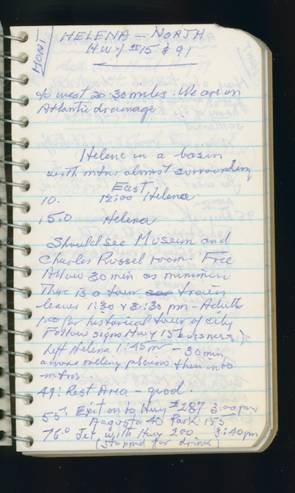 MONT
HELENA — NORTH
Hwy #15 & 91
to west 20-30 miles. We are on
Atlantic drainage
Helena in a basin
with mtns almost surrounding
East
10. 12:00 Helena
15.0 Helena
Should see Museum and
Charles Russel room. Free
Allow 30 min as minimum
There is a tour train
leaves 1:30 & 3:30 pm - Adults
for historical tour of city
Follow signs Hwy 15
Left Helena 1:45 pm - 30 min
rolling then into
mtns
49. Rest Area - good
55. Exit on to Hwy #287 3:00 pm
Augusta 40
76.0 Jct. with Hwy 200 3:40 pm
(Stopped for drink)